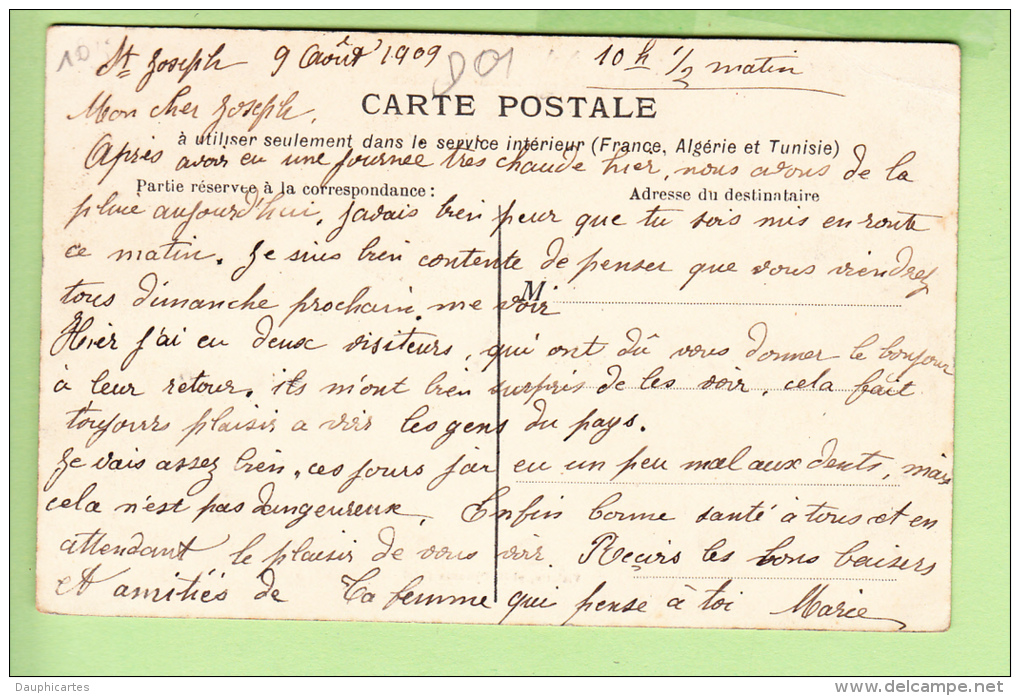 10
St Joseph 9 Août 1909 DO1 10 h 1/2 matin
Mon cher Joseph,
CARTE POSTALE
à utiliser seulement dans le service intérieur (France, Algérie et Tunisie)
Après avoir eu une journée tres chaude hier, nous avons de la
Partie réservée à la correspondance: Adresse du destinataire
pluie aujourd'hui, j'avais bien peur que tu sois mis en route
ce matin. Je suis bien contente de penser que vous viendrez
tous dimanche prochain me voir
M
Hier j'ai eu deux visiteurs, qui ont dû vous donner le bonjour
à leur retour. ils m'ont bien surpris de les voir, cela fait
toujours plaisir a voir les gens du pays.
Je vais assez bien, ces jours j'ai eu un peu mal aux dents, mais
cela n'est pas dangeureux. Enfin bonne santé à tous et en
attendant le plaisir de vous voir. Reçois les bons baisers
et amitiés de Ta femme qui pense à toi Marie
Dauphicartes
delcampe.net